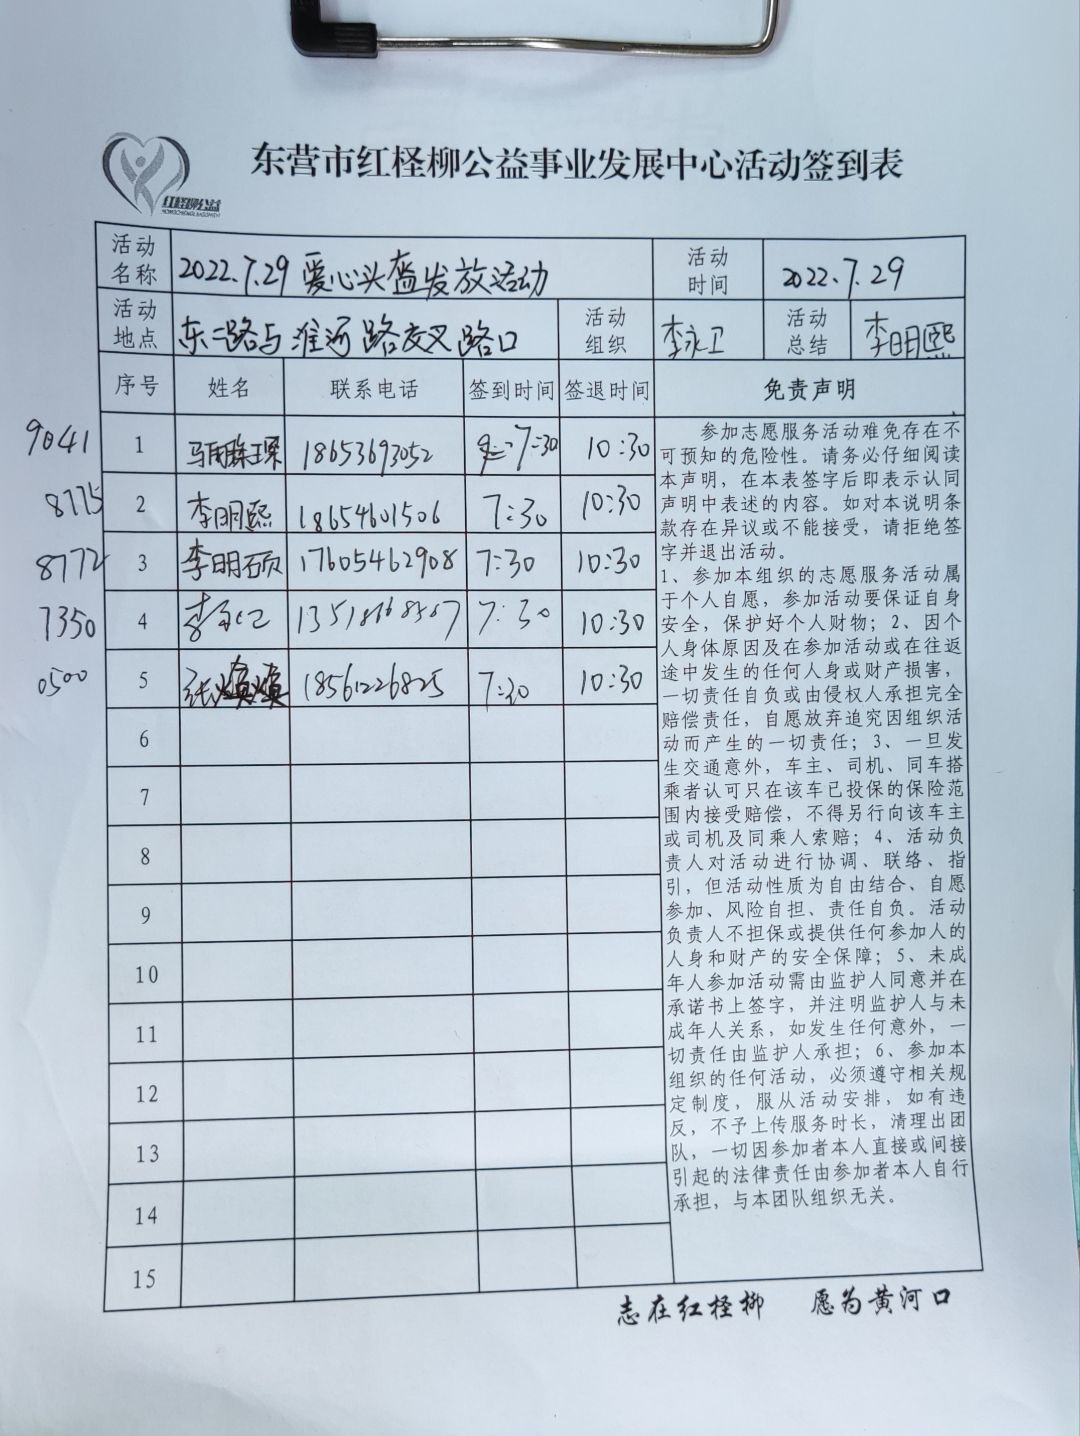 东营市红柽柳公益事业发展中心活动签到表
红柽柳公益
活动名称 2022.7.29 爱心头盔发放活动 活动时间 2022.7.29
活动地点 东二路与淮河路交叉路口 活动组织 李永卫 活动总结 李明熙
序号 姓名 联系电话 签到时间 签退时间 免责声明
9041 1 18653693052 7:30 10:30
8775 2 李明熙 18654601506 7:30 10:30
8772 3 李明硕 17605462908 7:30 10:30
7350 4 7:30 10:30
0500 5 18561226825 7:30 10:30
6
7
8
9
10
11
12
13
14
15
参加志愿服务活动难免存在不
可预知的危险性。请务必仔细阅读
本声明，在本表签字后即表示认同
声明中表述的内容。如对本说明条
款存在异议或不能接受，请拒绝签
字并退出活动。
1、参加本组织的志愿服务活动属
于个人自愿，参加活动要保证自身
安全，保护好个人财物；2、因个
人身体原因及在参加活动或在往返
途中发生的任何人身或财产损害，
一切责任自负或由侵权人承担完全
赔偿责任，自愿放弃追究因组织活
动而产生的一切责任；3、一旦发
生交通意外，车主、司机、同车搭
乘者认可只在该车已投保的保险范
围内接受赔偿，不得另行向该车主
或司机及同乘人索赔；4、活动负
责人对活动进行协调、联络、指
引，但活动性质为自由结合、自愿
参加、风险自担、责任自负。活动
负责人不担保或提供任何参加人的
人身和财产的安全保障；5、未成
年人参加活动需由监护人同意并在
承诺书上签字，并注明监护人与未
成年人关系，如发生任何意外，一
切责任由监护人承担；6、参加本
组织的任何活动，必须遵守相关规
定制度，服从活动安排，如有违
反，不予上传服务时长，清理出团
队，一切因参加者本人直接或间接
引起的法律责任由参加者本人自行
承担，与本团队组织无关。
志在红柽柳 愿为黄河口